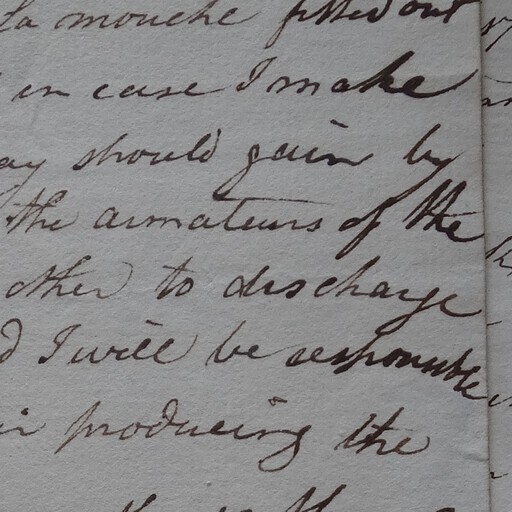 La mouche fitted out
in case I make
ay should gain by
the armateurs of the
other to discharge
d I will be responsible
producing the